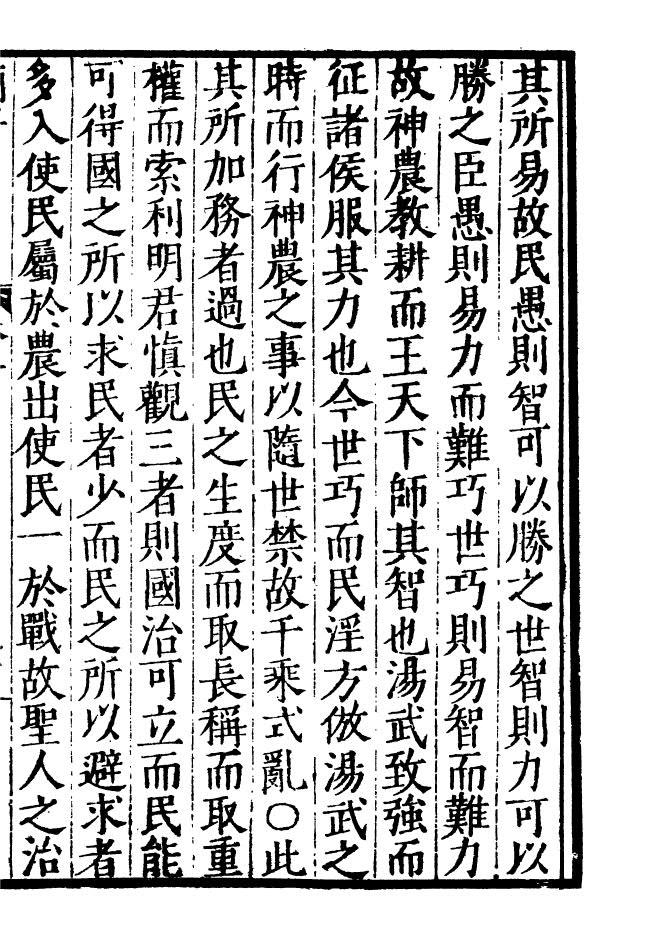 其所易故民愚則智可以勝之世智則力可以
勝之臣愚則易力而難巧世巧則易智而難力
故神農教耕而王天下師其智也湯武致強而
征諸侯服其力也今世巧而民淫方倣湯武之
時而行神農之事以隨世禁故千乘式亂○此
其所加務者過也民之生度而取長稱而取重
權而索利明君慎觀三者則國治可立而民能
可得國之所以求民者少而民之所以避求者
多入使民屬於農出使民一於戰故聖人之治